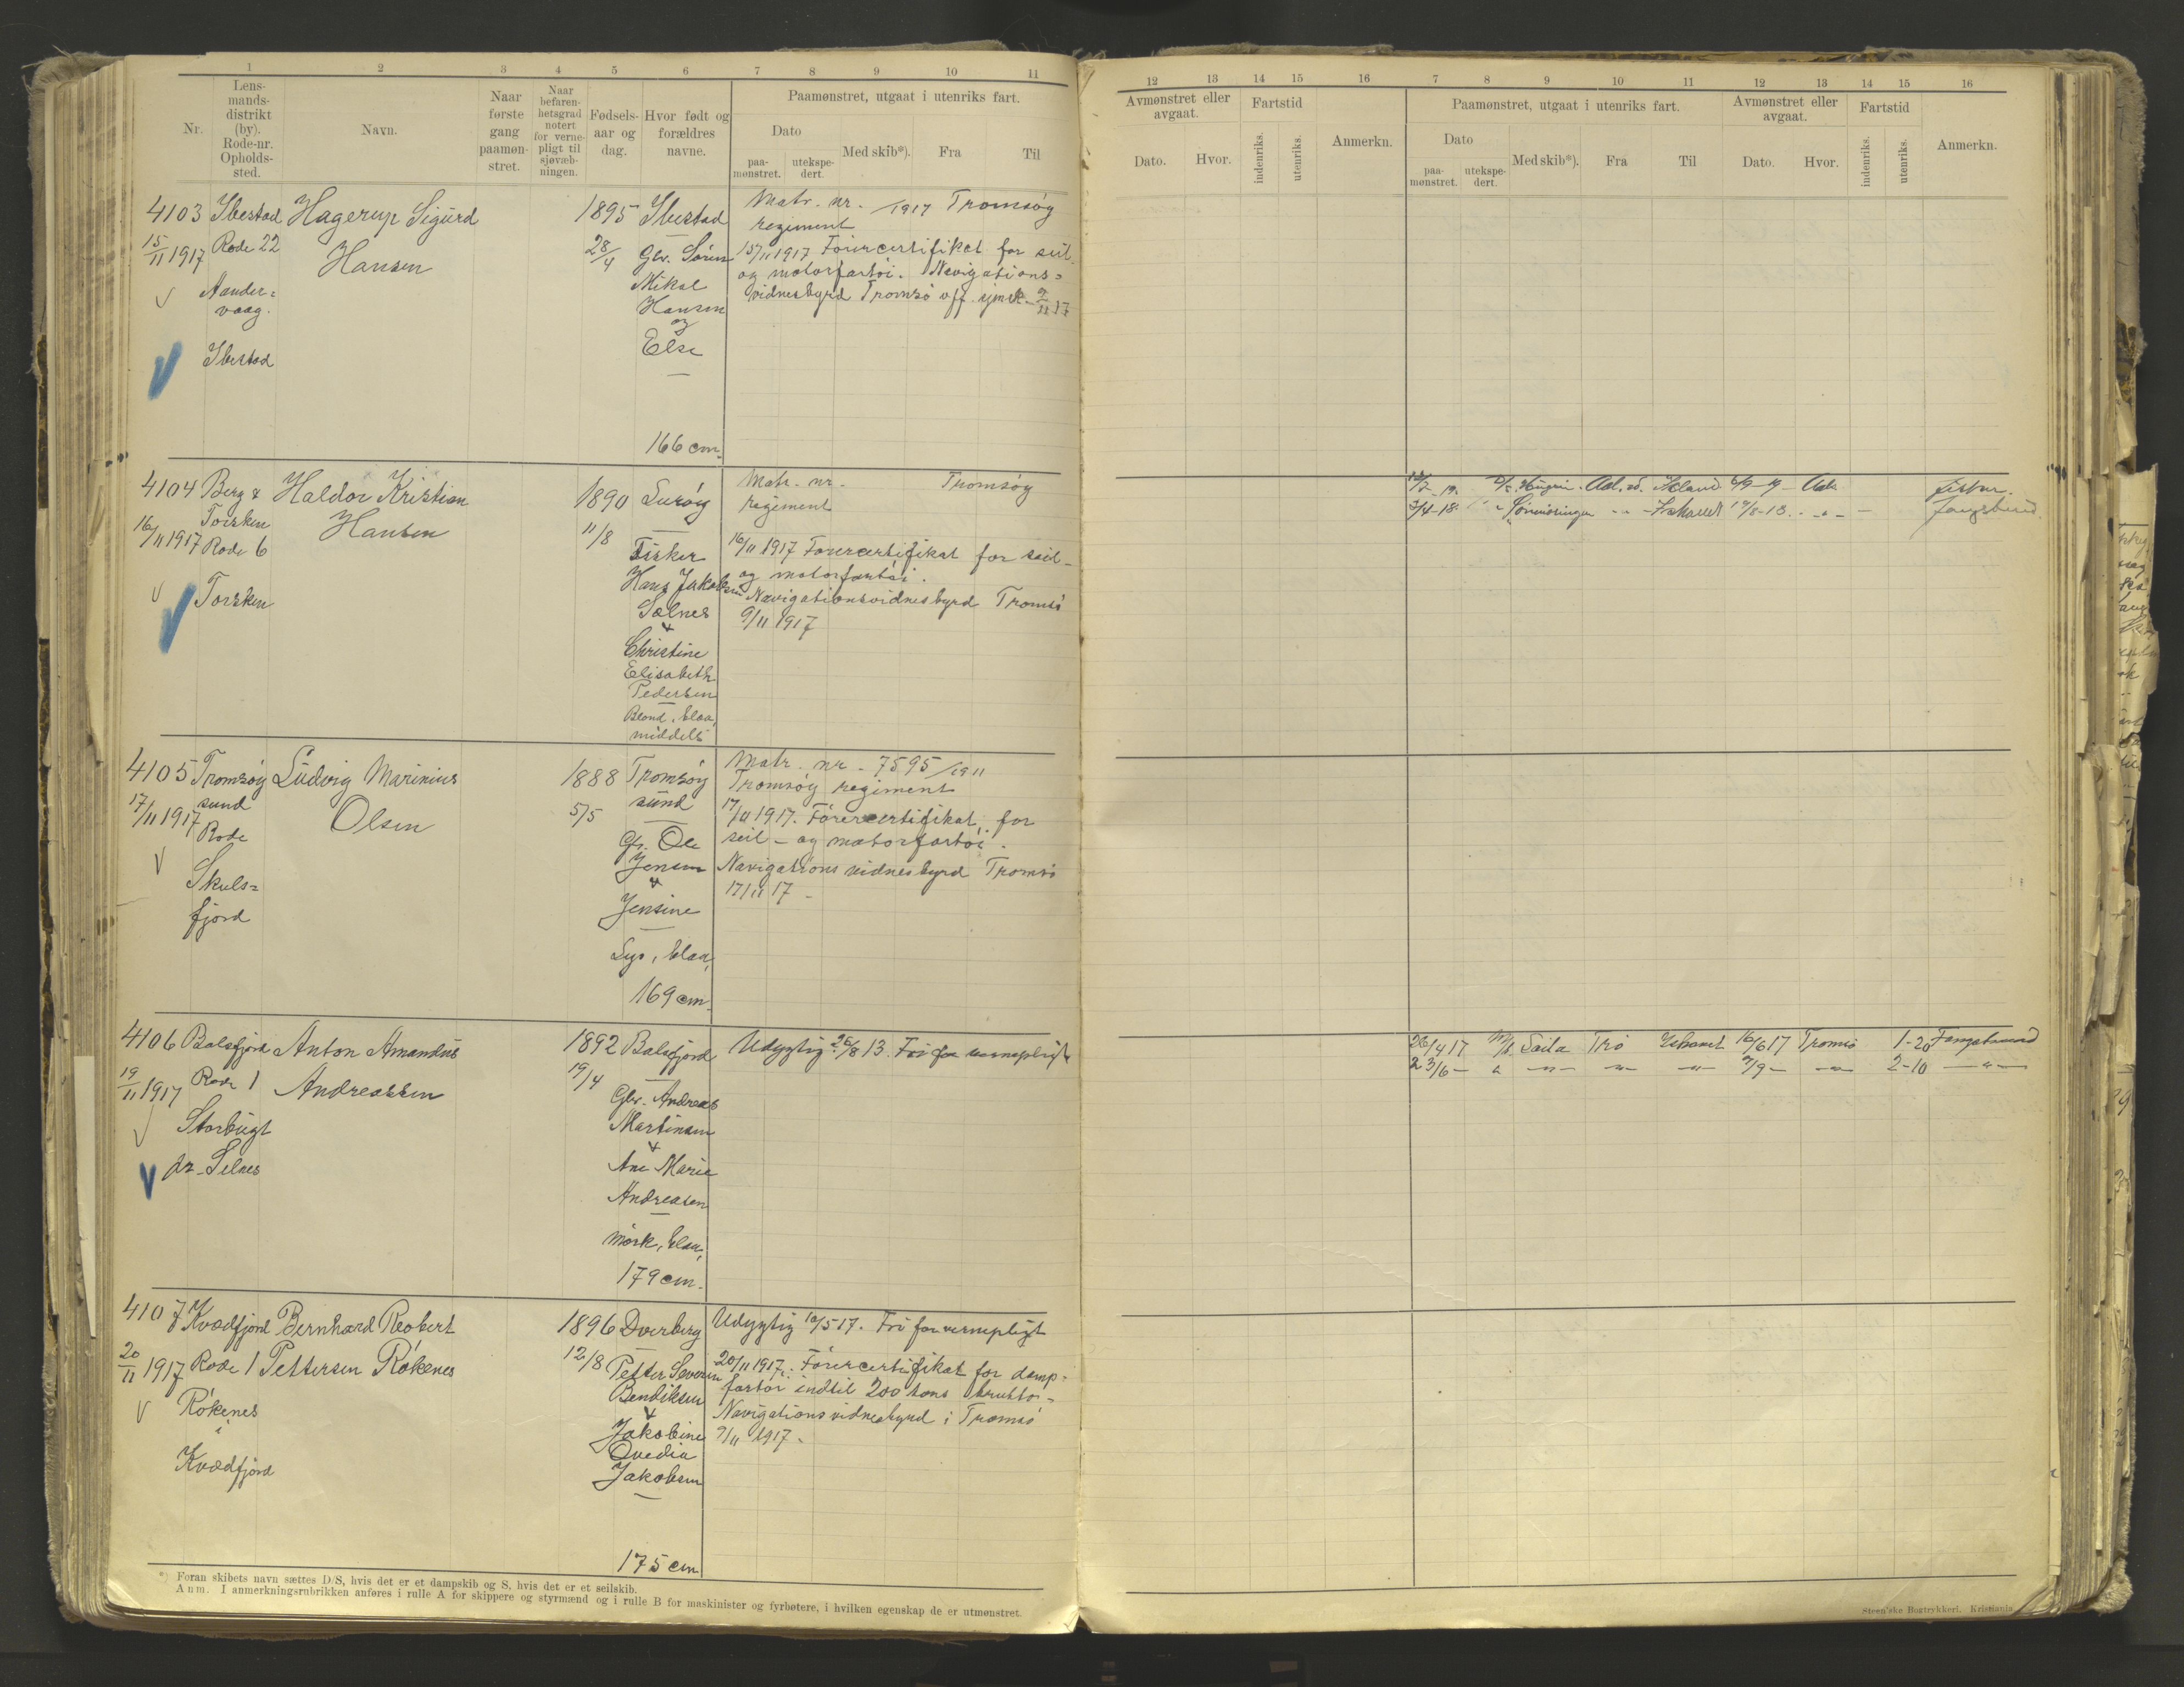 1 2 3 4 5 6 7 8 9 10 11
Nr.
Lens-
mands-
distrikt
(by).
Rode-nr.
Opholds-
sted.
Navn.
Naar
første
gang
paamøn-
stret.
Naar
befaren-
hetsgrad
notert
for verne-
pligt til
sjøvæb-
ningen.
Fødsels-
aar og
dag.
Hvor født og
forældres
navne.
Paamønstret, utgaat i utenriks fart.
Dato
paa-
mønstret.
utekspe-
dert.
Med skib*).
Fra
Til
4103 Ibestad Hagerup Sigurd
15/11 1917 Rode 22 Hansen
Aander=
vaag.
Ibestad
1895 Ibestad
28/4 Gbr. Sören
Mikal
Hansen
og
Else
166 cm.
Matr. nr. - /1917 Tromsöy
regiment
15/11 1917 Förercertifikat for seil-
og motorfartöi. Navigations=
vidnesbyrd Tromsö off. sjmsk. 2/11 17
4104 Berg & Haldor Kristian
16/11 1917 Torsken Hansen
Rode 6
Torsken
1890 Luröy
11/8
Fisker
Hans Jakobsen
Solnes
&
Christine
Elisabeth
Pedersen
Blond, blaa,
middels
Matr. nr. - Tromsöy
regiment
16/11 1917 Förercertifikat for seil-
og motorfartöi.
Navigationsvidnesbyrd Tromsö
9/11 1917
4105 Tromsöy Ludvig Marinius
17/11 1917 sund Olsen
Rode
Skuls=
fjord
1888 Tromsöy
5/5 sund
Gbr. Ole
Jensen
&
Jensine
Lys, blaa,
169 cm.
Matr. nr. 7595/1911
Tromsöy regiment
17/11 1917. Förercertifikat for
seil- og motorfartöi.
Navigations vidnesbyrd Tromsö
17/11 17 -
4106 Balsfjord Anton Amandus
19/11 1917 Rode 1 Andreassen
Storbugt
pr. Selnes
1892 Balsfjord
19/4
Gbr. Andreas
Martinsen
&
Ane Marie
Andreasen
mörk, blaa,
179 cm.
Udygtig 26/8 13. Fri for vernepligt
4107 Kvædfjord Bernhard Robert
20/11 1917 Rode 1 Pettersen Rökenes
Rökenes
i
Kvædfjord
1896 Dverberg
12/8 Petter Severin
Bendiksen
&
Jakobine
Ovedia
Jakobsen
175 cm
Udygtig 10/5 17. Fri for vernepligt
20/11 1917. Förercertifikat for damp-
fartöi indtil 200 tons brutto.-
Navigationsvidnesbyrd i Tromsö
9/11 1917.
*) Foran skibets navn sættes D/S, hvis det er et dampskib og S, hvis det er et seilskib.
Anm. I anmerkningsrubrikken anføres i rulle A for skippere og styrmænd og i rulle B for maskinister og fyrbøtere, i hvilken egenskap de er utmønstret.
12 13 14 15 16 7 8 9 10 11 12 13 14 15 16
Avmønstret eller
avgaat.
Dato.
Hvor.
Fartstid
indenriks.
utenriks.
Anmerkn.
Paamønstret, utgaat i utenriks fart.
Dato
paa-
mønstret.
utekspe-
dert.
Med skib*).
Fra
Til
Avmønstret eller
avgaat.
Dato.
Hvor.
Fartstid
indenriks.
utenriks.
Anmerkn.
3/4-18 Ishavet
26/4 17 M/S. Laila Trö Ishavet 16/6 17 Tromsö 1-20 Fangstmand
23/6 - " -"- -"- -"- 2/9 - -"- 2-10 -"-
Steen'ske Bogtrykkeri. Kristiania